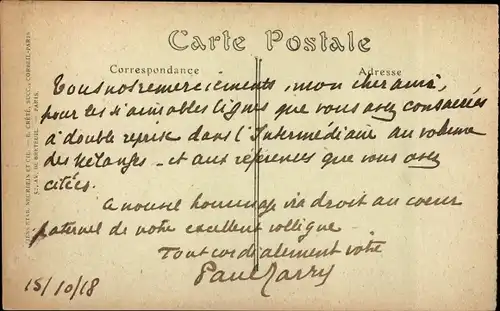 Carte Postale
Correspondance
Adresse
Tous nos remerciements, mon cher ami,
pour les si aimables lignes que vous avez consacrées
à double reprise dans l'Intermédiaire au volume
des Mélanges - et aux références que vous avez
citées.
A nouvel hommage ira droit au coeur
paternel de votre excellent collègue.
Tout cordialement vôtre
Paul
15/10/18